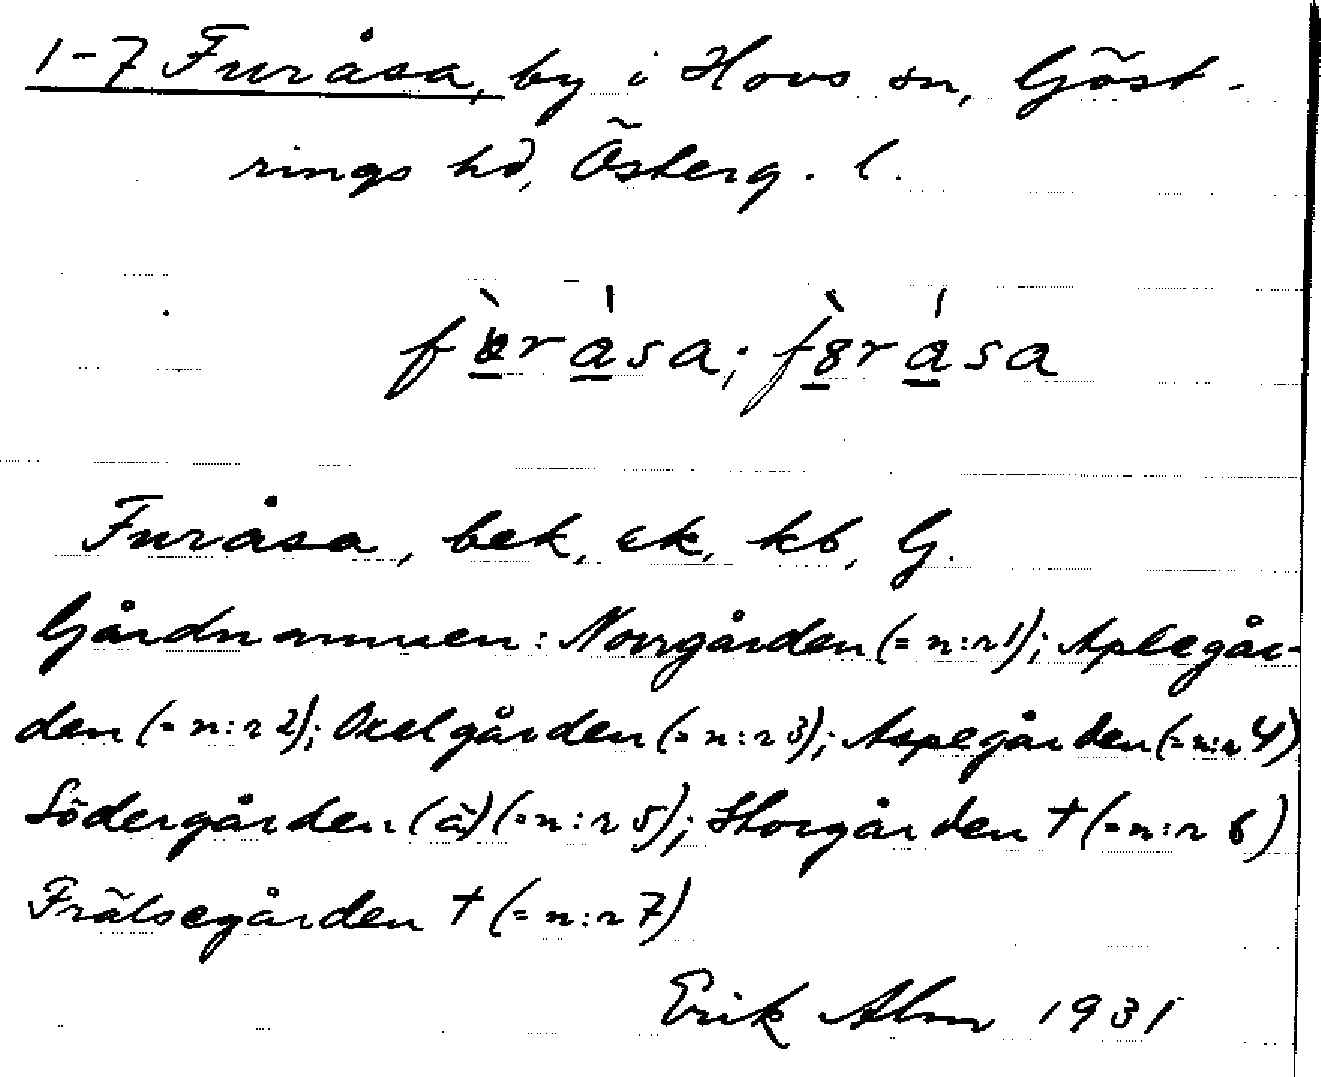 1-7 Furåsa, by i Hovs sn, Göst-
rings hd, Österg. l.
Furåsa, bek, ek, kb, G.
Gårdnamnen: Norrgården (= n:r 1); Aplegår-
den (= n:r 2); Oxelgården (= n:r 3); Aspegården (= n:r 4)
Södergården (à) (= n:r 5); Storgården † (= n:r 6)
Frälsegården † (= n:r 7)
Erik Alm 1931